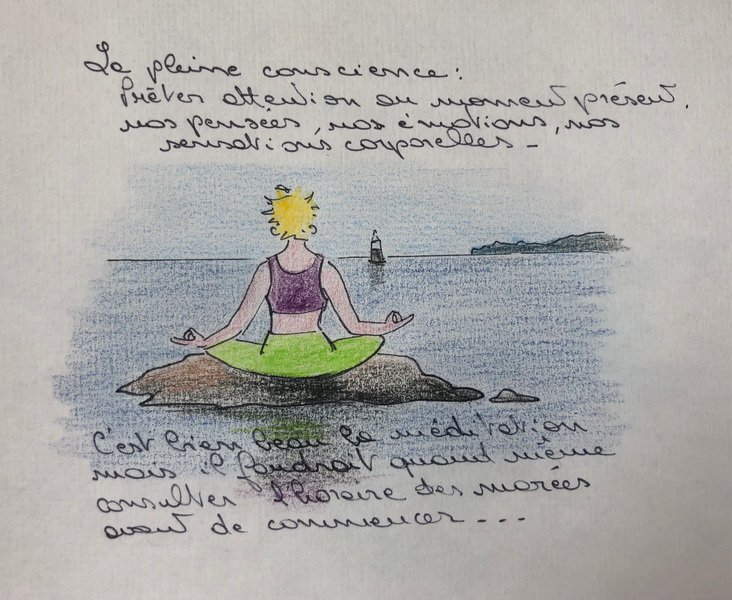 La pleine conscience :
Prêter attention au moment présent,
nos pensées, nos émotions, nos
sensations corporelles -
C'est bien beau la méditation
mais il faudrait quand même
consulter l'horaire des marées
avant de commencer ---